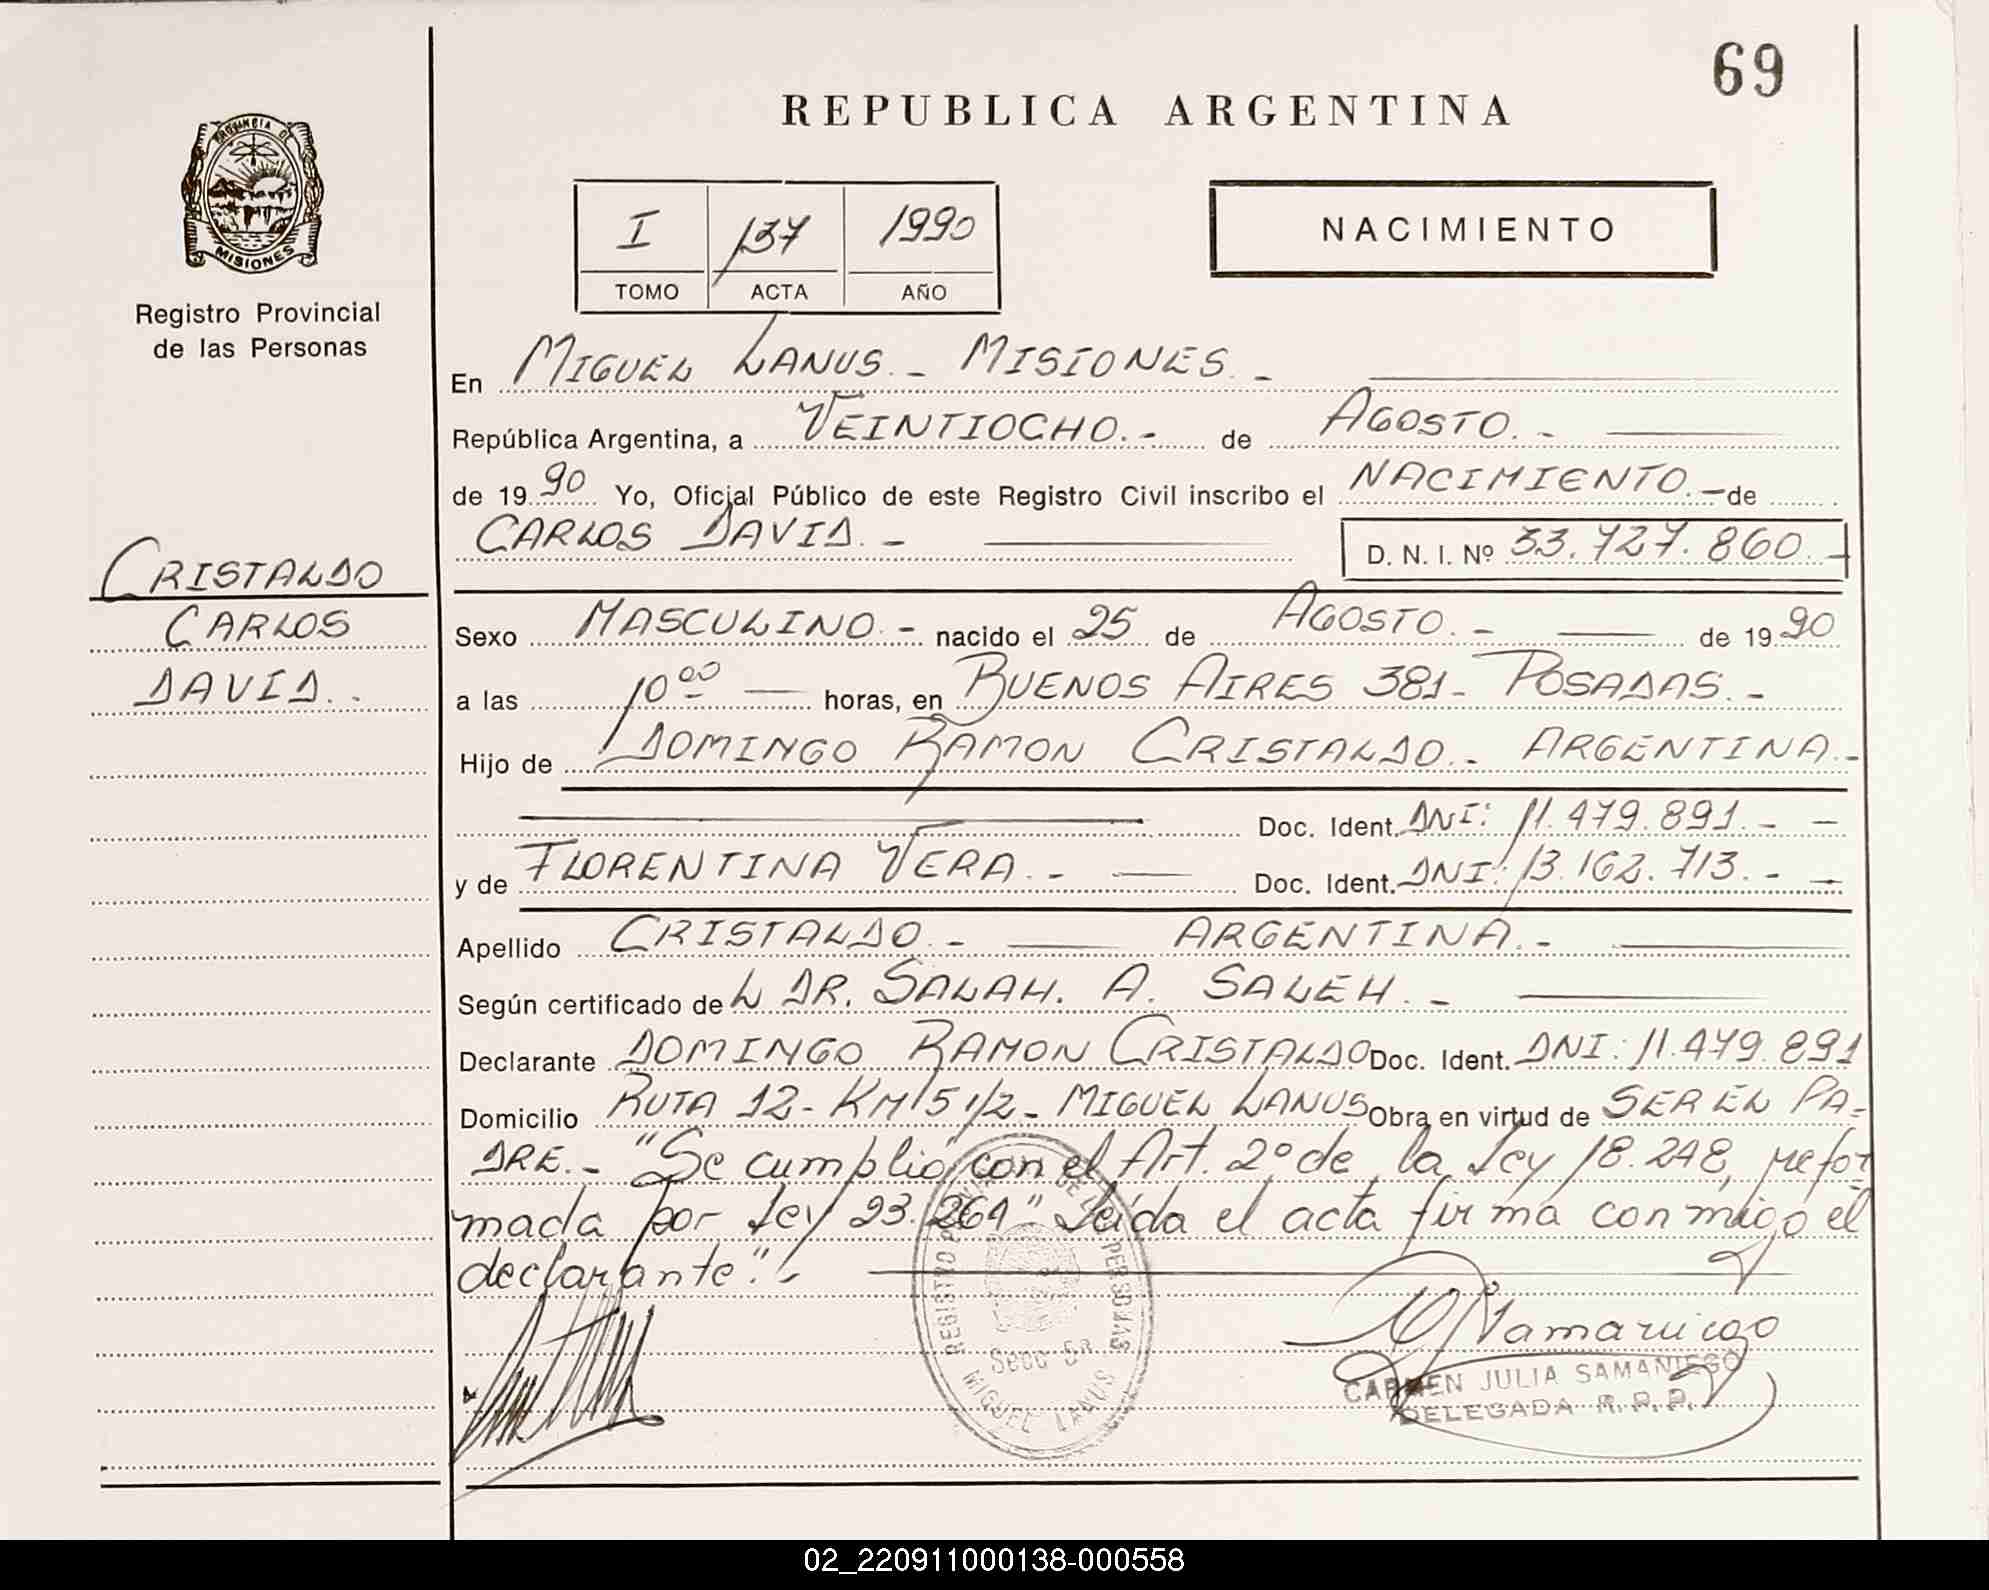 69
REPUBLICA ARGENTINA
PROVINCIA DE
MISIONES
Registro Provincial
de las Personas
I 137 1990
TOMO ACTA AÑO
NACIMIENTO
En MIGUEL LANUS.- MISIONES.-
República Argentina, a VEINTIOCHO.- de AGOSTO.-
de 1990 Yo, Oficial Público de este Registro Civil inscribo el NACIMIENTO.- de
CARLOS DAVID.- D. N. I. Nº 33.727.860.-
CRISTALDO
CARLOS
DAVID.-
Sexo MASCULINO.- nacido el 25 de AGOSTO.- de 1990
a las 10⁰⁰ horas, en BUENOS AIRES 381- POSADAS.-
Hijo de DOMINGO RAMON CRISTALDO.- ARGENTINA.-
Doc. Ident. DNI: 11.479.891.-
y de FLORENTINA VERA.- Doc. Ident. DNI: 13.162.713.-
Apellido CRISTALDO.- ARGENTINA.-
Según certificado de L DR. SALAH. A. SALEH.-
Declarante DOMINGO RAMON CRISTALDO Doc. Ident. DNI: 11.479.891
Domicilio RUTA 12- KM 5 1/2- MIGUEL LANUS Obra en virtud de SER EL PA-
DRE.- "Se cumplio con el Art. 2º de la Ley 18.248, refor
mada por Ley 23.264" Leída el acta firma conmigo el
declarante".-
REGISTRO PROVINCIAL DE LAS PERSONAS
Secc 5ª
MIGUEL LANUS
CARMEN JULIA SAMANIEGO
DELEGADA R. P. P.
02_220911000138-000558